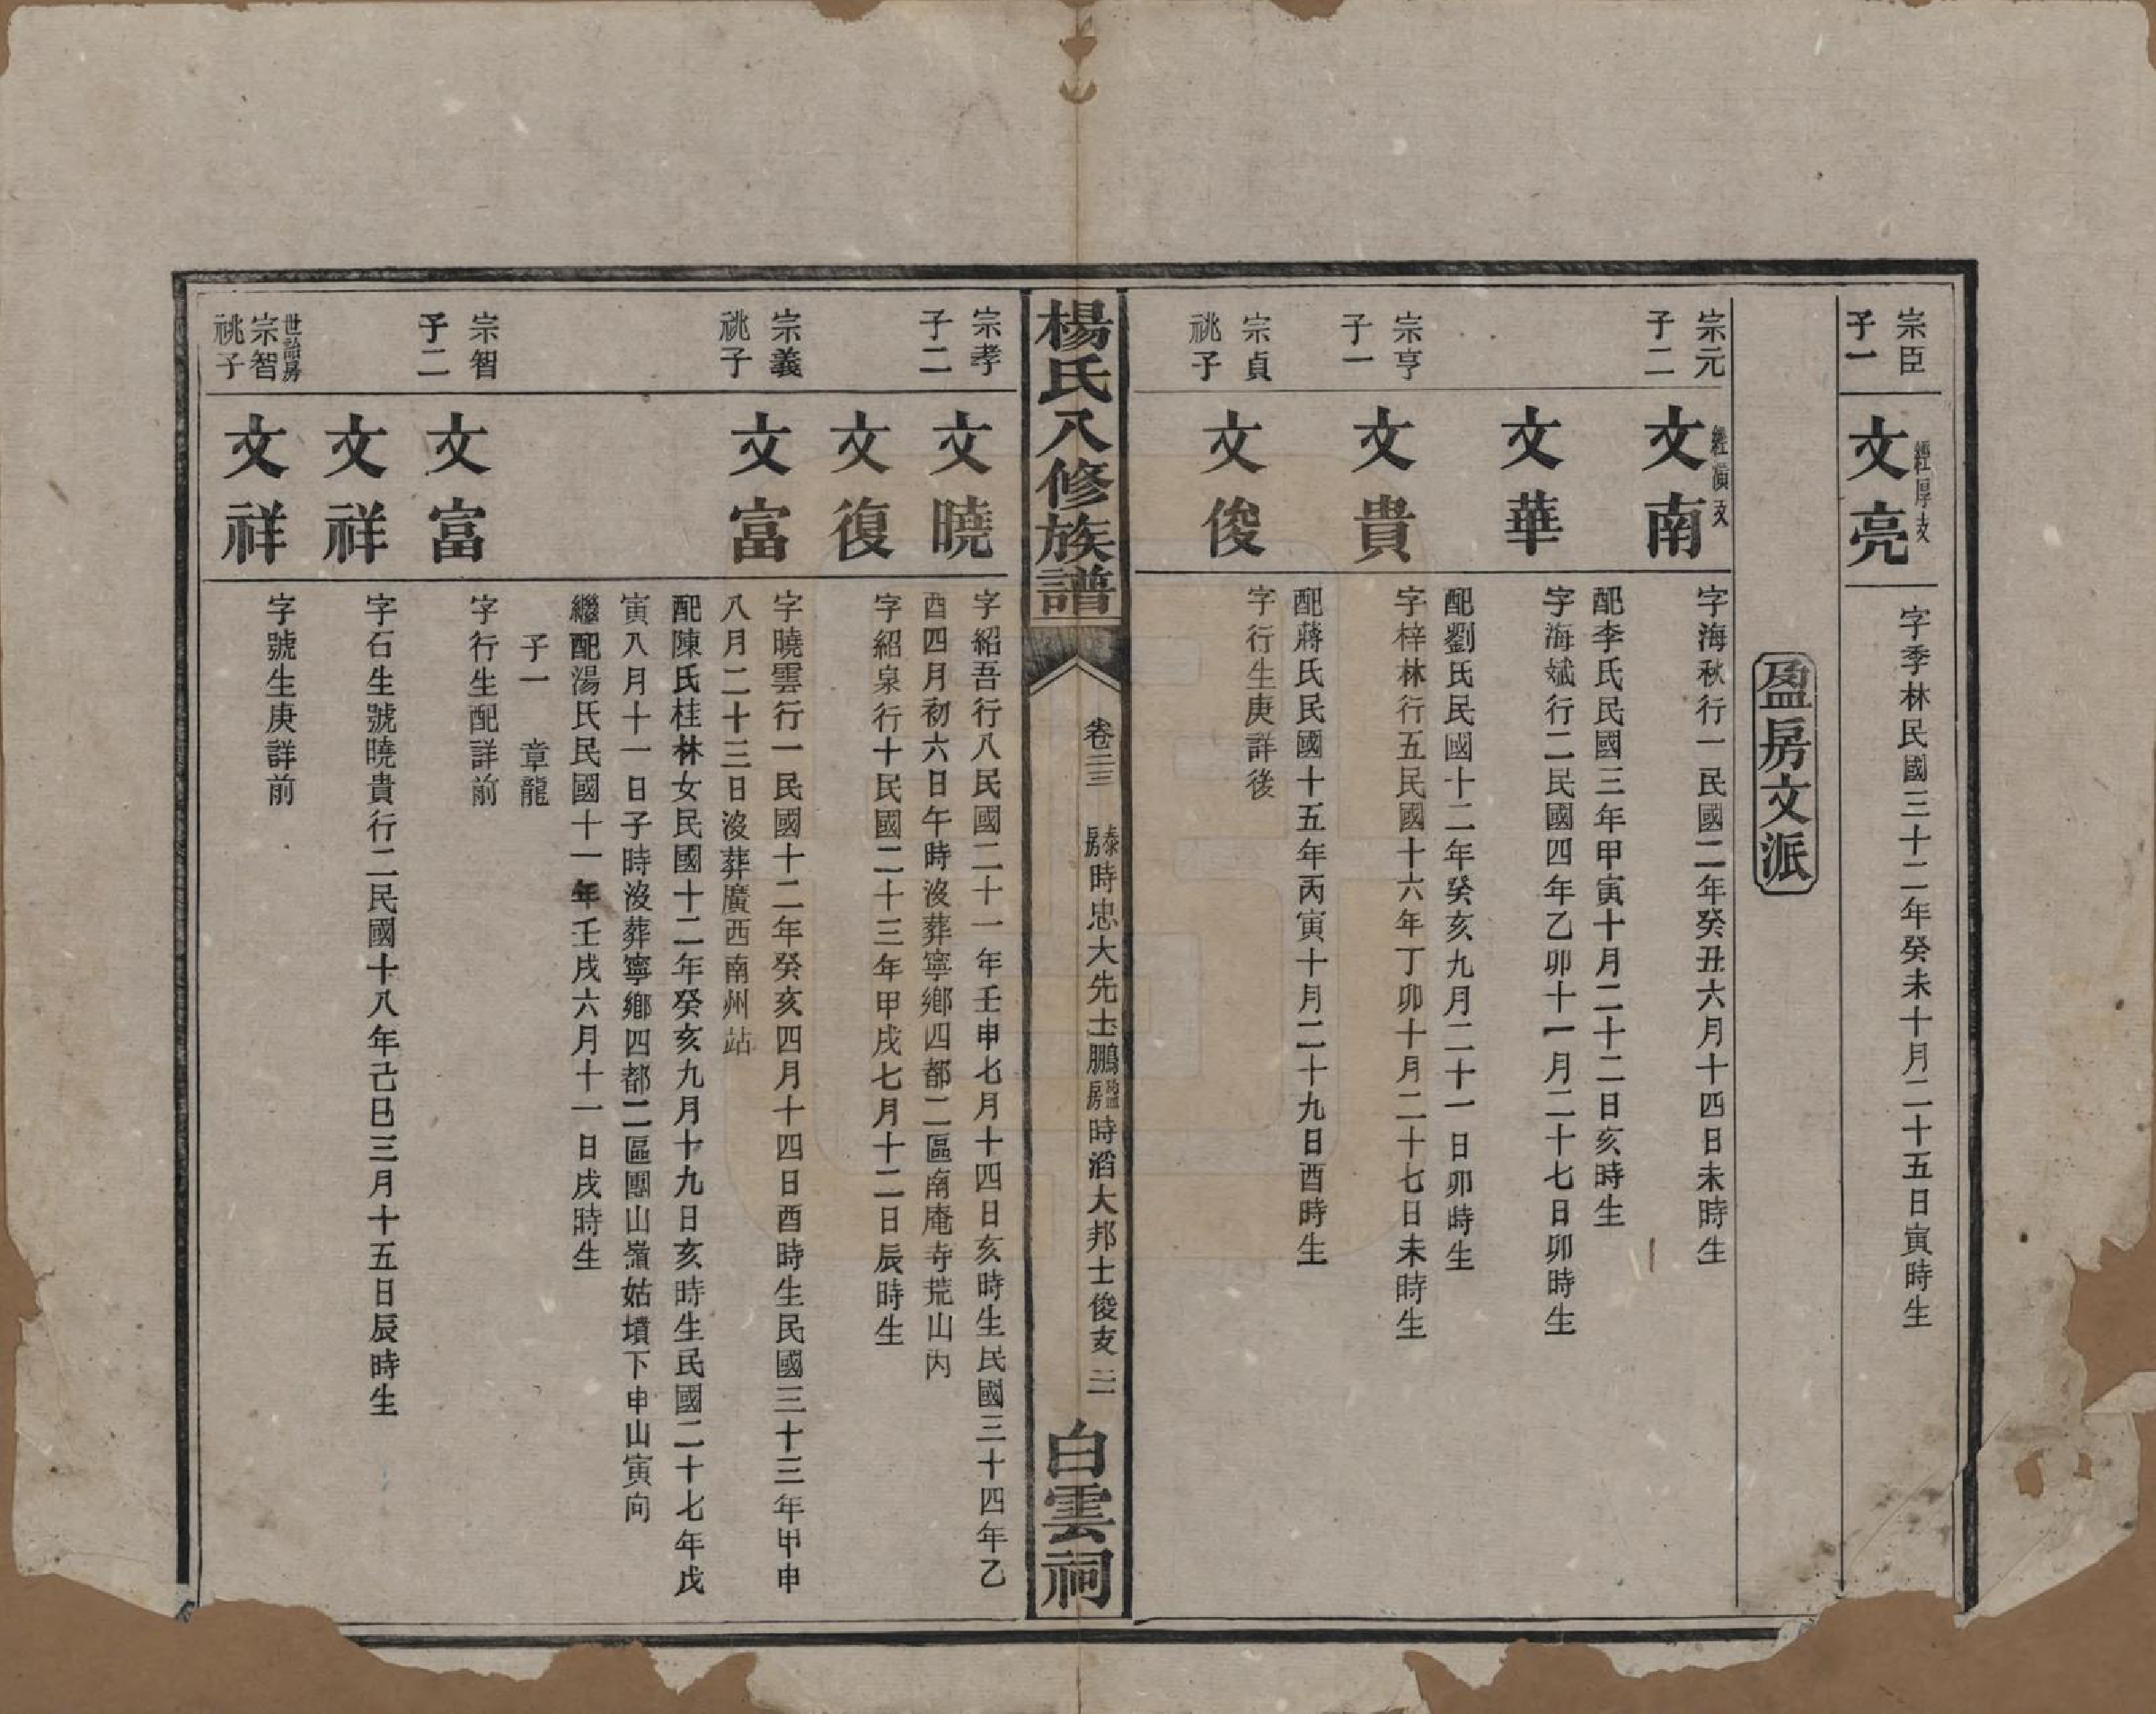 宗臣
子一
經厚支
文亮
字季林民國三十二年癸未十月二十五日寅時生
盈房文派
宗元
子二
文南
字海秋行一民國二年癸丑六月十四日未時生
配李氏民國三年甲寅十月二十二日亥時生
文華
字海斌行二民國四年乙卯十一月二十七日卯時生
配劉氏民國十二年癸亥九月二十一日卯時生
宗亨
子一
文貴
字梓林行五民國十六年丁卯十月二十七日未時生
配蔣氏民國十五年丙寅十月二十九日酉時生
宗貞
祧子
文俊
字行生庚詳後
楊氏八修族譜
卷二三
泰房時忠大先士鵬
房時滔大邦士俊支
二
白雲祠
宗孝
子二
文曉
字紹吾行八民國二十一年壬申七月十四日亥時生民國三十四年乙
酉四月初六日午時沒葬寧鄉四都二區南庵寺荒山內
文復
字紹泉行十民國二十三年甲戌七月十二日辰時生
宗義
祧子
文富
字曉雲行一民國十二年癸亥四月十四日酉時生民國三十三年甲申
八月二十三日沒葬廣西南州站
配陳氏桂林女民國十二年癸亥九月十九日亥時生民國二十七年戊
寅八月十一日子時沒葬寧鄉四都二區團山嶺姑墳下申山寅向
繼配湯氏民國十一年壬戌六月十一日戌時生
子一 章龍
宗智
子二
文富
字行生配詳前
文祥
字石生號曉貴行二民國十八年己巳三月十五日辰時生
世詒房
宗智
祧子
文祥
字號生庚詳前